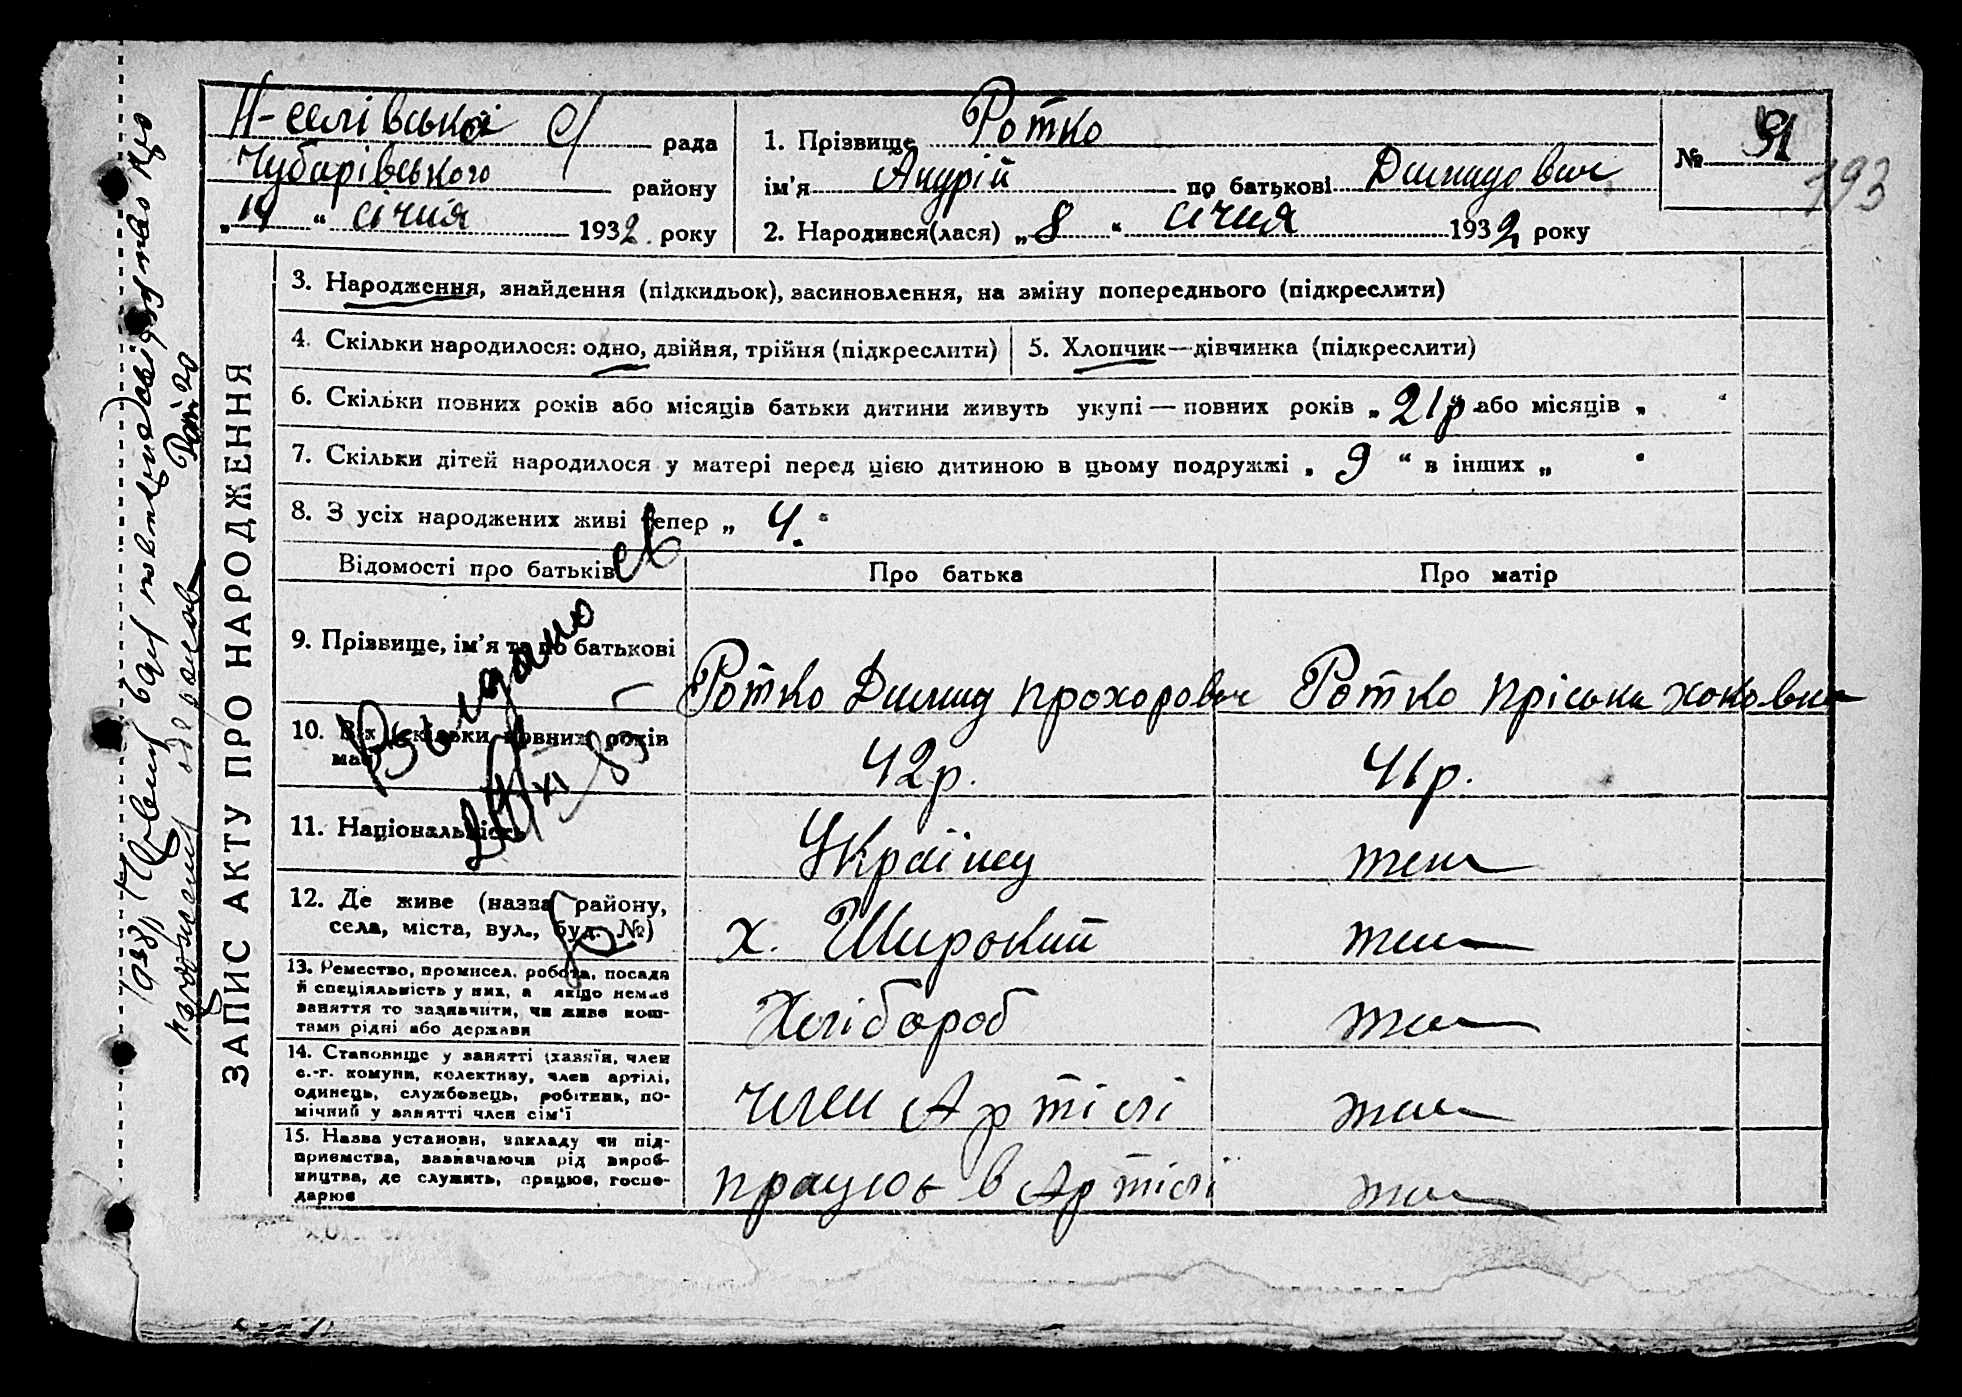 Н-селівської с/ рада
Чубарівського району
„14“ січня 1932 року
1. Прізвище Ротко
ім'я Андрій по батькові Димидович
2. Народився(лася) „8“ січня 1932 року
№ 91
193
ЗАПИС АКТУ ПРО НАРОДЖЕННЯ
3. Народження, знайдення (підкидьок), засиновлення, на зміну попереднього (підкреслити)
4. Скільки народилося: одно, двійня, трійня (підкреслити)
5. Хлопчик—дівчинка (підкреслити)
6. Скільки повних років або місяців батьки дитини живуть укупі — повних років „21р або місяців „ “
7. Скільки дітей народилося у матері перед цією дитиною в цьому подружжі „ 9 “ в інших „ “
8. З усіх народжених живі тепер „ 4 “
Відомості про батьків
Про батька
Про матір
9. Прізвище, ім'я та по батькові
Ротко Димид Прохорович
Ротко Пріська
10. Вік (скільки повних років
має)
42р.
41р.
11. Національність
Українці
теж
12. Де живе (назва району,
села, міста, вул., буд. №)
х. Широкий
теж
13. Ремество, промисел, робота, посада
й спеціяльність у них, а якщо немає
заняття то зазначити, чи живе кош-
тами рідні або держави
Хлібороб
теж
14. Становище у занятті (хазяїн, член
с.-г. комуни, колективу, член артілі,
одинець, службовець, робітник, по-
мічний у занятті член сім'ї
член Артілі
теж
15. Назва установи, закладу чи під-
приємства, зазначаючи рід вироб-
ництва, де служить, працює, госпо-
дарює
працює в Артілі
теж
Выдано
XI 83